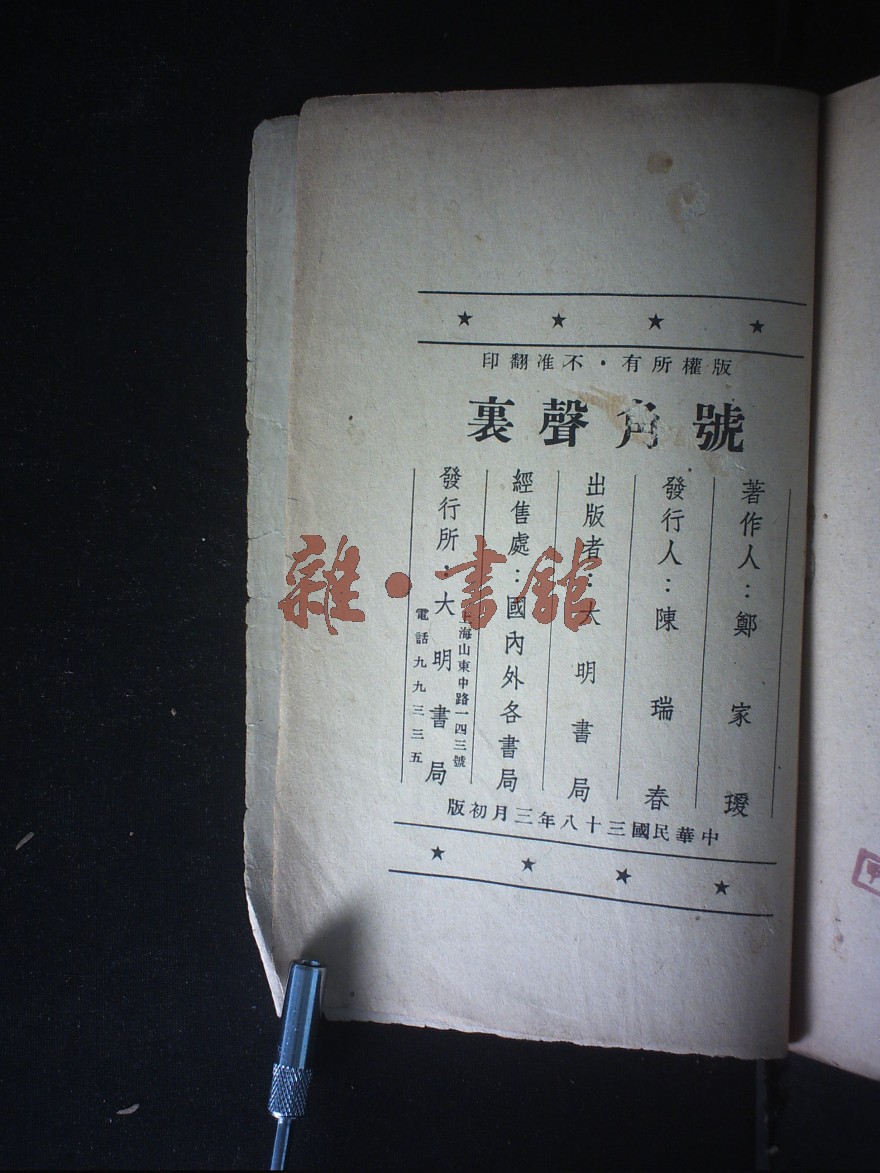 版權所有・不准翻印
號角聲裏
著作人：鄭家璦
發行人：陳瑞春
出版者：大明書局
經售處：國內外各書局
發行所：大明書局
上海山東中路一四三號
電話九九三三五
中華民國三十八年三月初版
雜·書館